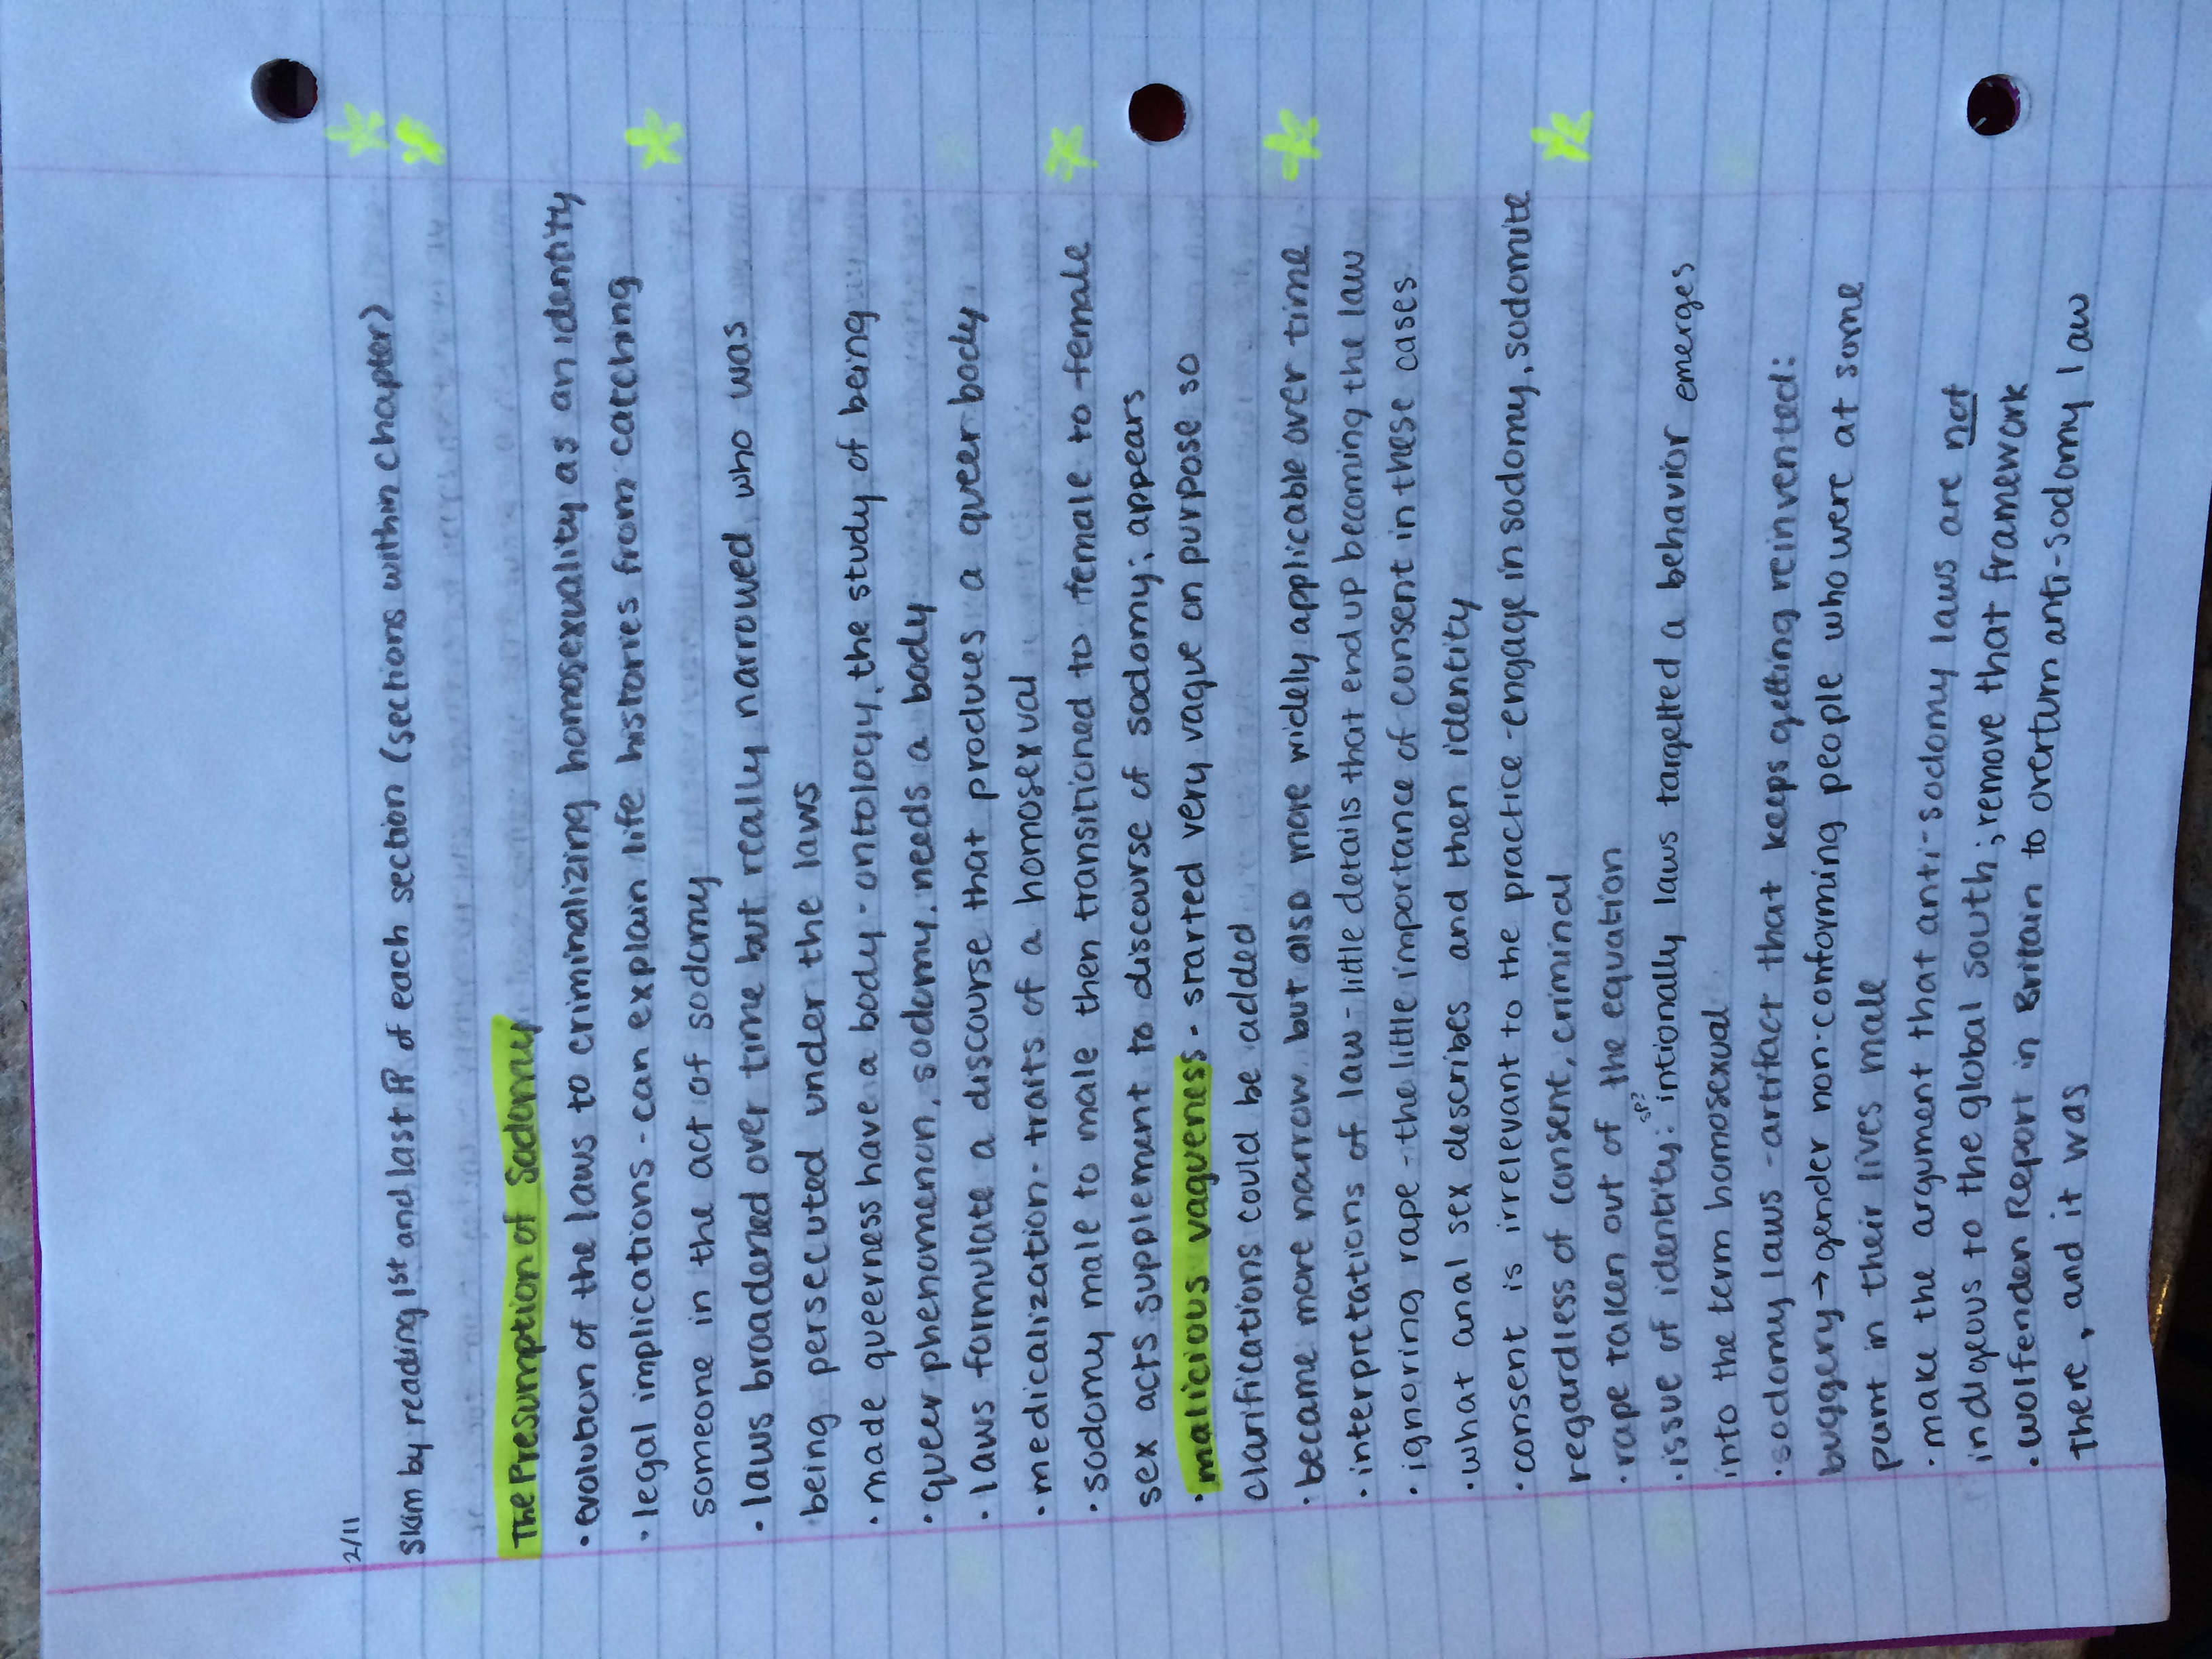 2/11
Skim by reading 1st and last ¶ of each section (sections within chapter)
The Presumption of Sodomy
• evolution of the laws to criminalizing homosexuality as an identity
• legal implications - can explain life histories from catching
someone in the act of sodomy
• laws broadened over time but really narrowed who was
being persecuted under the laws
• made queerness have a body - ontology, the study of being
• queer phenomenon, sodomy, needs a body
• laws formulate a discourse that produces a queer body
• medicalization - traits of a homosexual
• sodomy male to male then transitioned to female to female
sex acts supplement to discourse of sodomy; appears
• malicious vagueness - started very vague on purpose so
clarifications could be added
• became more narrow but also more widely applicable over time
• interpretations of law - little details that end up becoming the law
• ignoring rape - the little importance of consent in these cases
• what anal sex describes and then identity
• consent is irrelevant to the practice - engage in sodomy, sodomite
regardless of consent, criminal
• rape taken out of the equation
sp?
• issue of identity: intionally laws targetted a behavior emerges
into the term homosexual
• sodomy laws - artifact that keeps getting reinvented:
buggery → gender non-conforming people who were at some
piunt in their lives male
• make the argument that anti-sodomy laws are not
indigeous to the global south; remove that framework
• Wolfenden Report in Britain to overturn anti-sodomy law
there, and it was